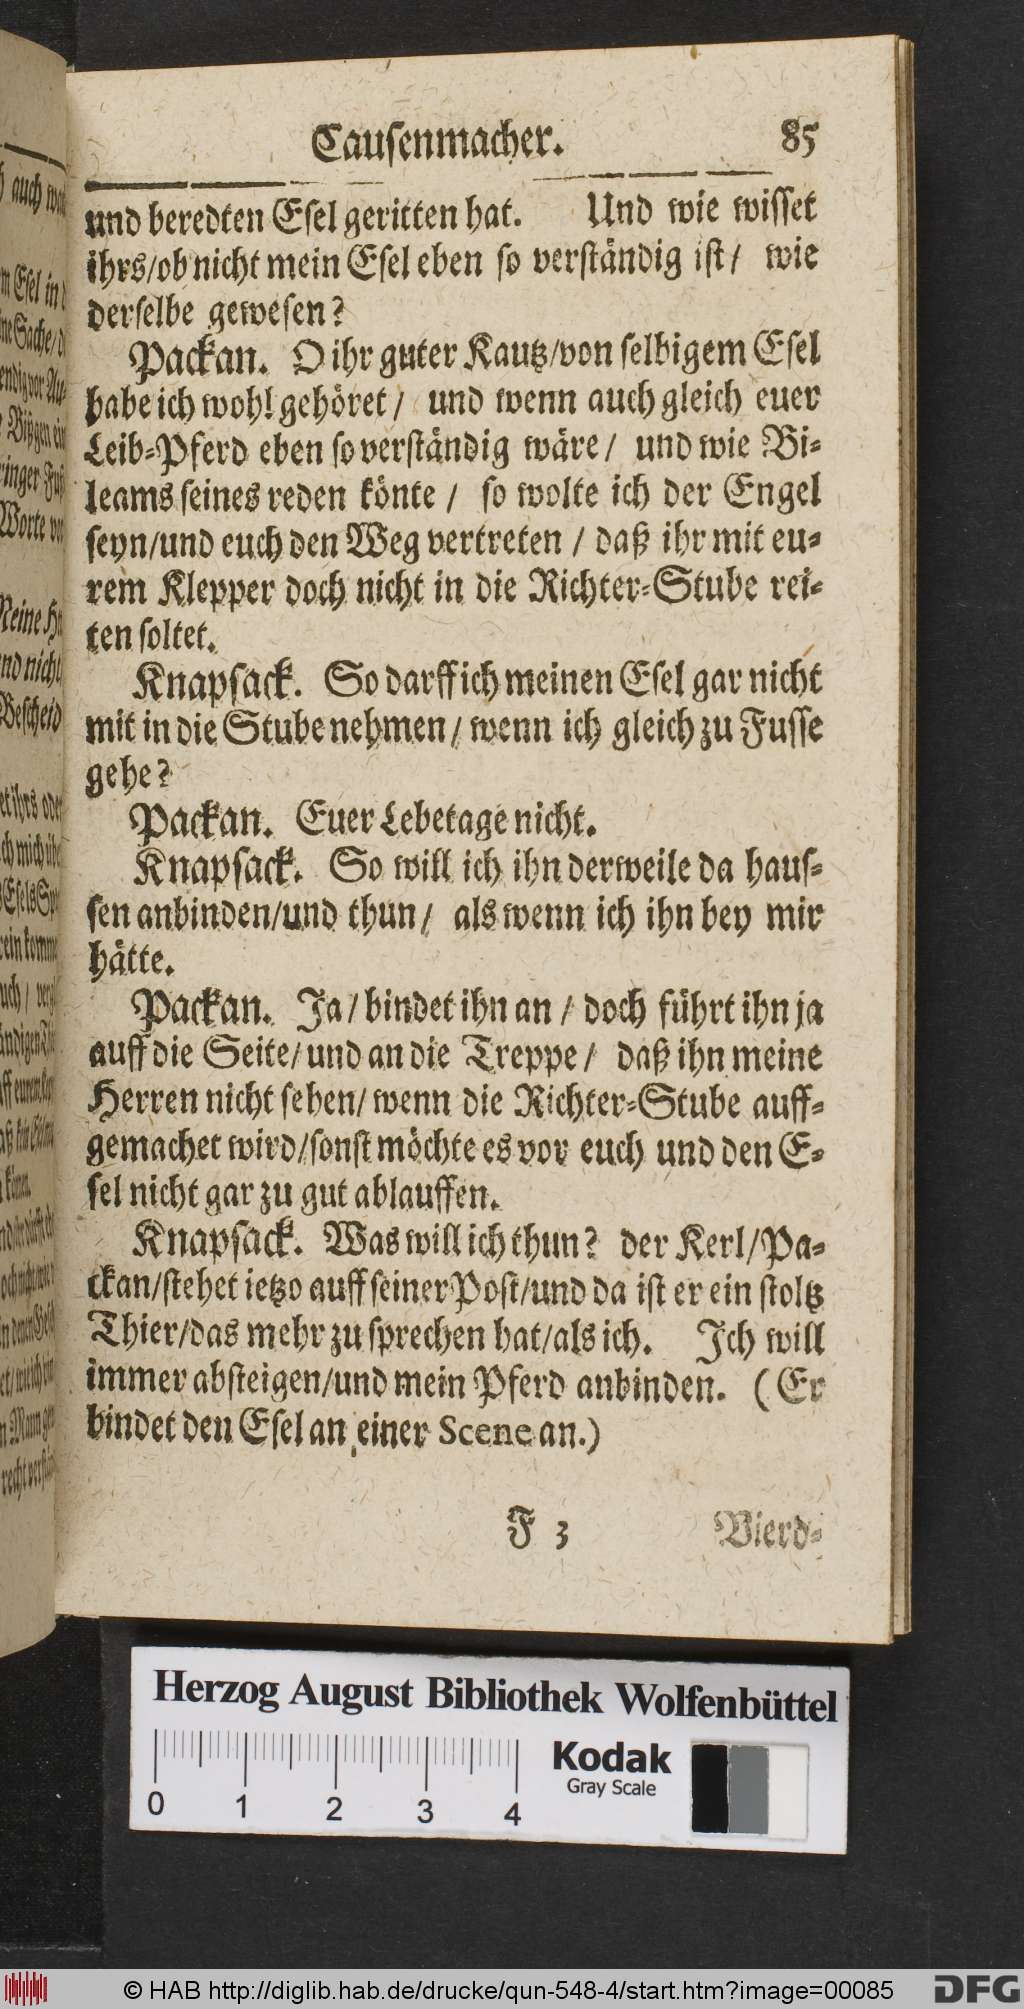 Causenmacher. 85
und beredten Esel geritten hat. Und wie wisset
ihrs/ob nicht mein Esel eben so verständig ist/ wie
derselbe gewesen?
Packan. O ihr guter Kautz/von selbigem Esel
habe ich wohl gehöret/ und wenn auch gleich euer
Leib-Pferd eben so verständig wäre/ und wie Bi-
leams seines reden könte/ so wolte ich der Engel
seyn/und euch den Weg vertreten/ daß ihr mit eu-
rem Klepper doch nicht in die Richter-Stube rei-
ten soltet.
Knapsack. So darff ich meinen Esel gar nicht
mit in die Stube nehmen/ wenn ich gleich zu Fusse
gehe?
Packan. Euer Lebetage nicht.
Knapsack. So will ich ihn derweile da haus-
sen anbinden/und thun/ als wenn ich ihn bey mir
hätte.
Packan. Ja/ bindet ihn an/ doch führt ihn ja
auff die Seite/ und an die Treppe/ daß ihn meine
Herren nicht sehen/ wenn die Richter-Stube auff-
gemachet wird/sonst möchte es vor euch und den E-
sel nicht gar zu gut ablauffen.
Knapsack. Was will ich thun? der Kerl/Pa-
ckan/stehet ietzo auff seiner Post/und da ist er ein stoltz
Thier/das mehr zu sprechen hat/als ich. Ich will
immer absteigen/und mein Pferd anbinden. (Er
bindet den Esel an einer Scene an.)
F 3 Vierd-
Herzog August Bibliothek Wolfenbüttel
Kodak
Gray Scale
0 1 2 3 4
© HAB http://diglib.hab.de/drucke/qun-548-4/start.htm?image=00085
DFG